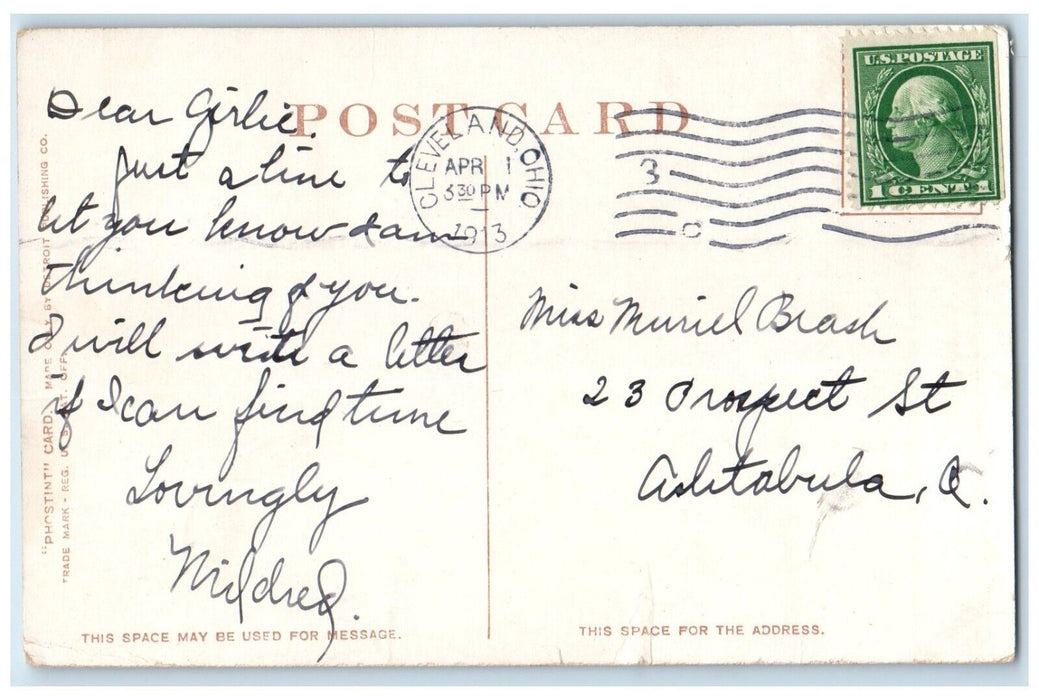 POST CARD
U.S. POSTAGE
1 CENT
CLEVELAND, OHIO
APR 1
630 PM
1913
3
Dear Girlie.
Just a line to
let you know I am
thinking of you.
I will write a letter
if I can find time
Lovingly
Mildred.
Miss Muriel Brash
23 Prospect St
Ashtabula, O.
"PHOSTINT" CARD. MADE ONLY BY DETROIT PUBLISHING CO.
TRADE MARK - REG. U. S. PAT. OFF.
THIS SPACE MAY BE USED FOR MESSAGE.
THIS SPACE FOR THE ADDRESS.